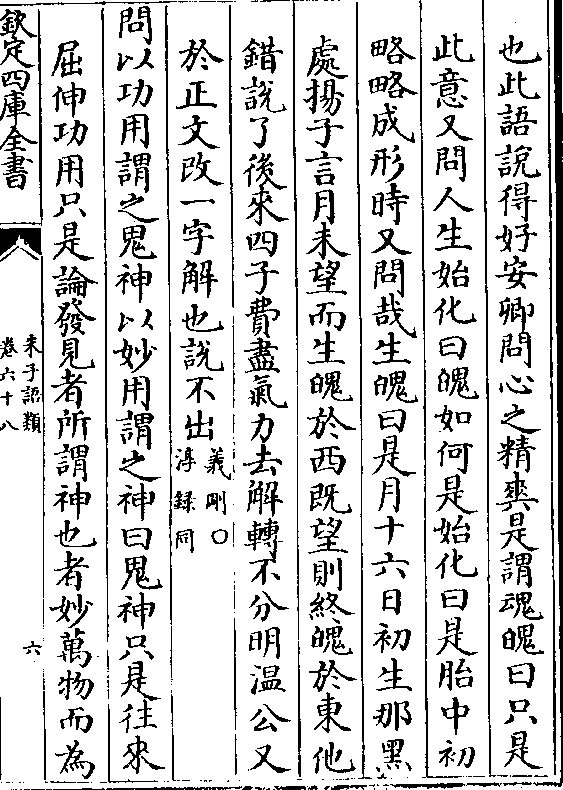 也此語說得好安卿問心之精爽是謂魂魄曰只是
此意又問人生始化曰魄如何是始化曰是胎中初
略略成形時又問哉生魄曰是月十六日初生那黑
處揚子言月未望而生魄於西既望則終魄於東他
錯說了後來四子費盡氣力去解轉不分明温公又
於正文改一字解也說不出義剛○淳録同
問以功用謂之鬼神以妙用謂之神曰鬼神只是往來
屈伸功用只是論發見者所謂神也者妙萬物而為
欽定四庫全書
朱子語類
卷六十八
六